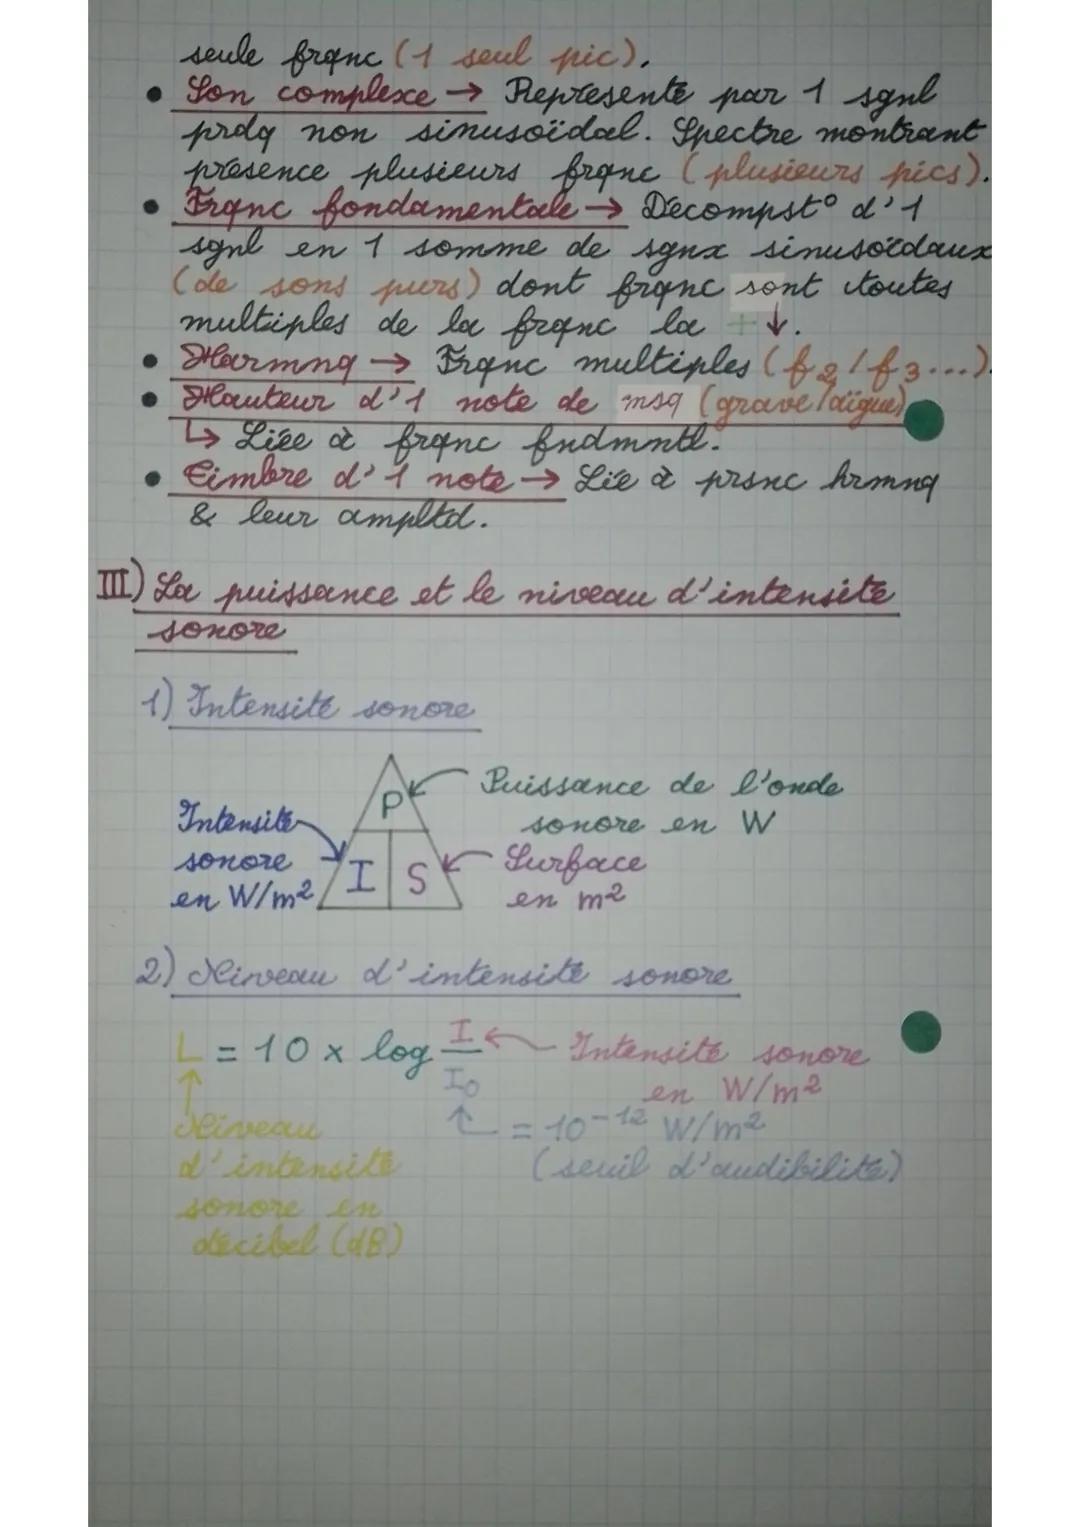 seule frqnc (1 seul pic).
• Son complexe → Représenté par 1 sgnl
prdq non sinusoïdal. Spectre montrant
présence plusieurs frqnc (plusieurs pics).
• Frqnc fondamentale → Décompst° d'1
sgnl en 1 somme de sgnx sinusoïdaux
(de sons purs) dont frqnc sont toutes
multiples de la frqnc la + ↓.
• Harmnq → Frqnc multiples (f2/f3...).
• Hauteur d'1 note de msq (grave/aïgue)
↳ Liée à frqnc fndmntl.
• Timbre d'1 note → Lié à prsnc hrmnq
& leur ampltd.
III) La puissance et le niveau d'intensité
sonore
1) Intensité sonore
P
Puissance de l'onde
sonore en W
Intensité
sonore
en W/m²
I S
Surface
en m²
2) Niveau d'intensité sonore
L = 10 x log I/I0
Intensité sonore
en W/m²
= 10⁻¹² W/m²
(seuil d'audibilité)
Niveau
d'intensité
sonore en
décibel (dB)